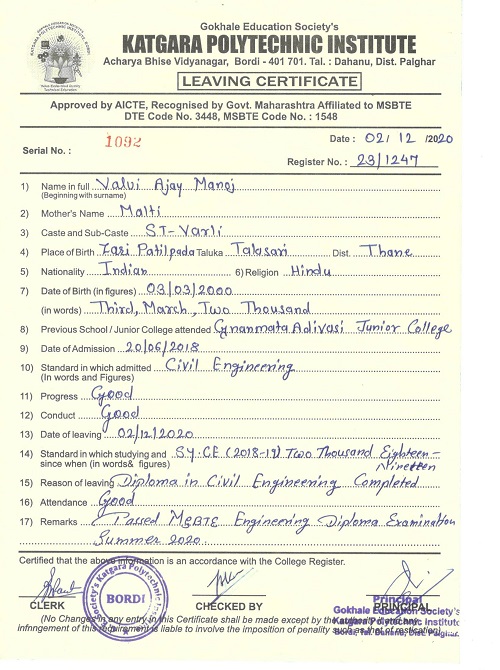 Gokhale Education Society's
KATGARA POLYTECHNIC INSTITUTE
Acharya Bhise Vidyanagar, Bordi - 401 701. Tal. : Dahanu, Dist. Palghar
LEAVING CERTIFICATE
Approved by AICTE, Recognised by Govt. Maharashtra Affiliated to MSBTE
DTE Code No. 3448, MSBTE Code No. : 1548
Date : 02/12/2020
Serial No. : 1092
Register No. : 23/1247
1) Name in full Valvi Ajay Manoj
(Beginning with surname)
2) Mother's Name Malti
3) Caste and Sub-Caste ST-Varli
4) Place of Birth Zari Patilpada Taluka Talasari Dist. Thane
5) Nationality Indian 6) Religion Hindu
7) Date of Birth (in figures) 03/03/2000
(in words) Third, March, Two Thousand
8) Previous School / Junior College attended Gnanmata Adivasi Junior College
9) Date of Admission 20/06/2018
10) Standard in which admitted Civil Engineering
(In words and Figures)
11) Progress Good
12) Conduct Good
13) Date of leaving 02/12/2020
14) Standard in which studying and SY.CE (2018-19) Two Thousand Eighteen-
since when (in words& figures) Nineteen
15) Reason of leaving Diploma in Civil Engineering Completed
16) Attendance Good
17) Remarks Passed MSBTE Engineering Diploma Examination
Summer 2020
Certified that the above information is an accordance with the College Register.
BORDI
CLERK CHECKED BY PRINCIPAL
Principal
Gokhale Education Society's
Katgara Polytechnic Institute
Bordi, Tal. Dahanu, Dist. Palghar
(No Changes in any entry in this Certificate shall be made except by the
infringement of this requirement is liable to involve the imposition of penalty